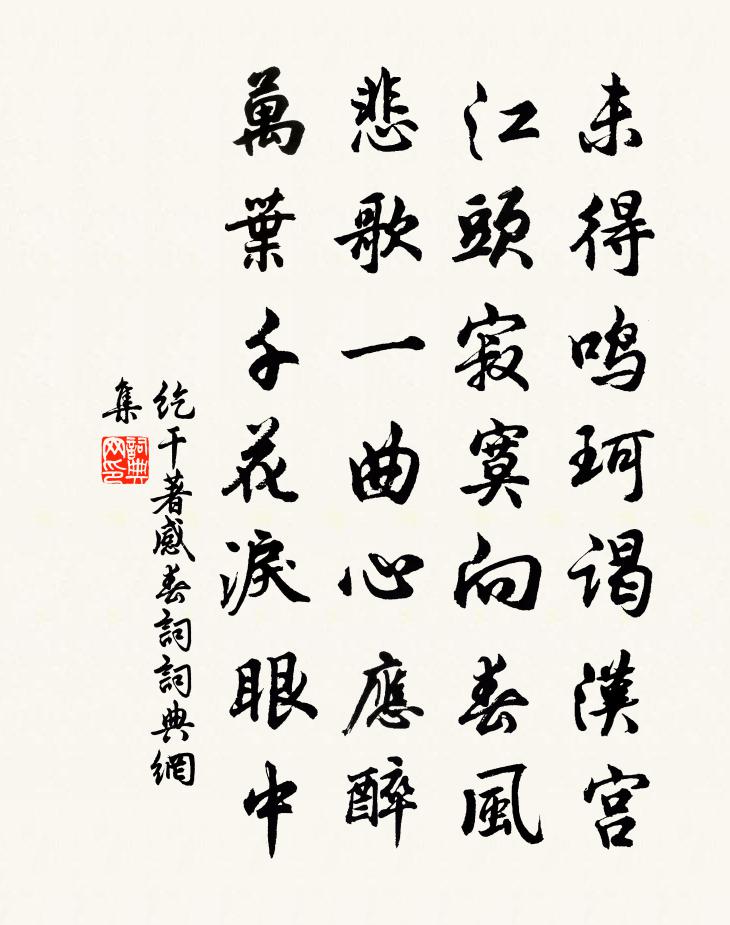 未得鳴珂謁漢宮
江頭寂寞向春風
悲歌一曲心應醉
萬葉千花淚眼中
紇干著感春詞詞典網
集
詞典
网印